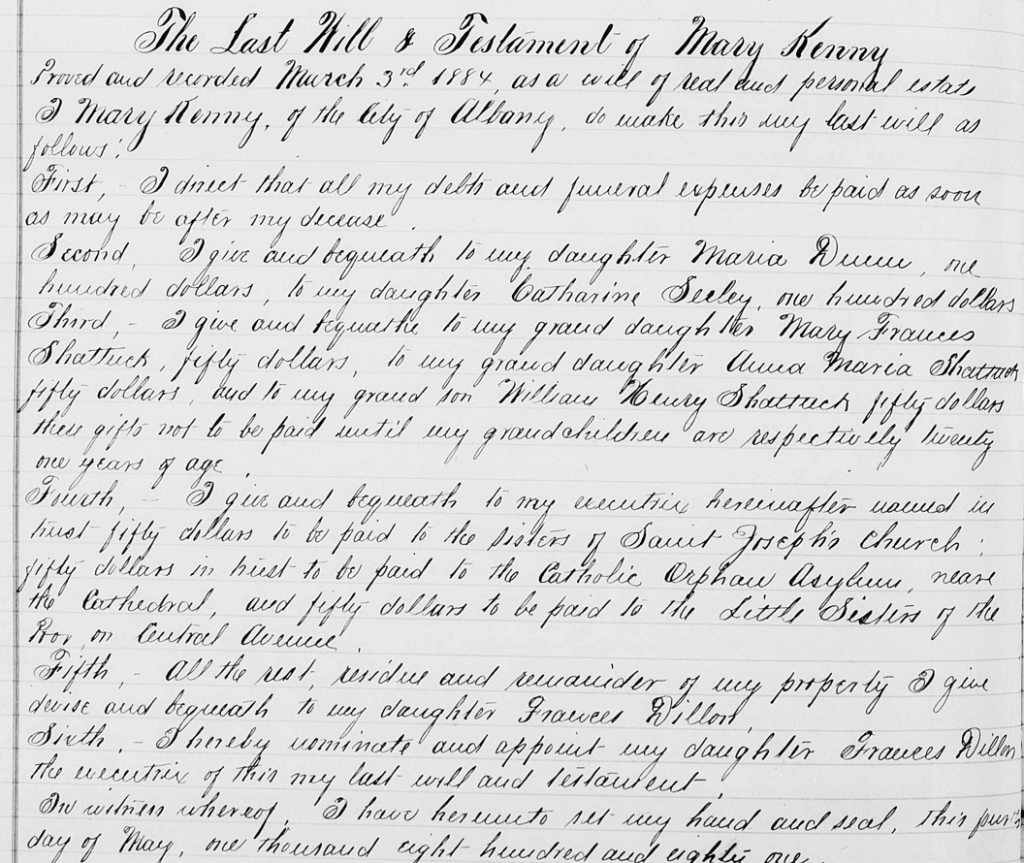 The Last Will & Testament of Mary Kenny
Proved and recorded March 3rd 1884, as a will of real and personal estate
I Mary Kenny, of the City of Albany, do make this my last will as
follows:
First, - I direct that all my debts and funeral expenses be paid as soon
as may be after my decease.
Second, I give and bequeath to my daughter Maria Dunn, one
hundred dollars, to my daughter Catharine Seeley, one hundred dollars
Third, - I give and bequeathe to my grand daughter Mary Frances
Shattuck, fifty dollars, to my grand daughter Anna Maria Shattuck
fifty dollars, and to my grand son William Henry Shattuck fifty dollars
these gifts not to be paid until my grandchildren are respectively twenty
one years of age.
Fourth, - I give and bequeath to my executrix hereinafter named in
trust fifty dollars to be paid to the sisters of Saint Joseph's Church:
fifty dollars in trust to be paid to the Catholic Orphan Asylum, neare
the Cathedral, and fifty dollars to be paid to the Little Sisters of the
Poor, on Central Avenue.
Fifth, - All the rest, residue and remainder of my property I give
devise and bequeath to my daughter Frances Dillon,
Sixth, - I hereby nominate and appoint my daughter Frances Dillon
the executrix of this my last will and testament.
In witness whereof, I have hereunto set my hand and seal, this
day of May, one thousand eight hundred and eighty one